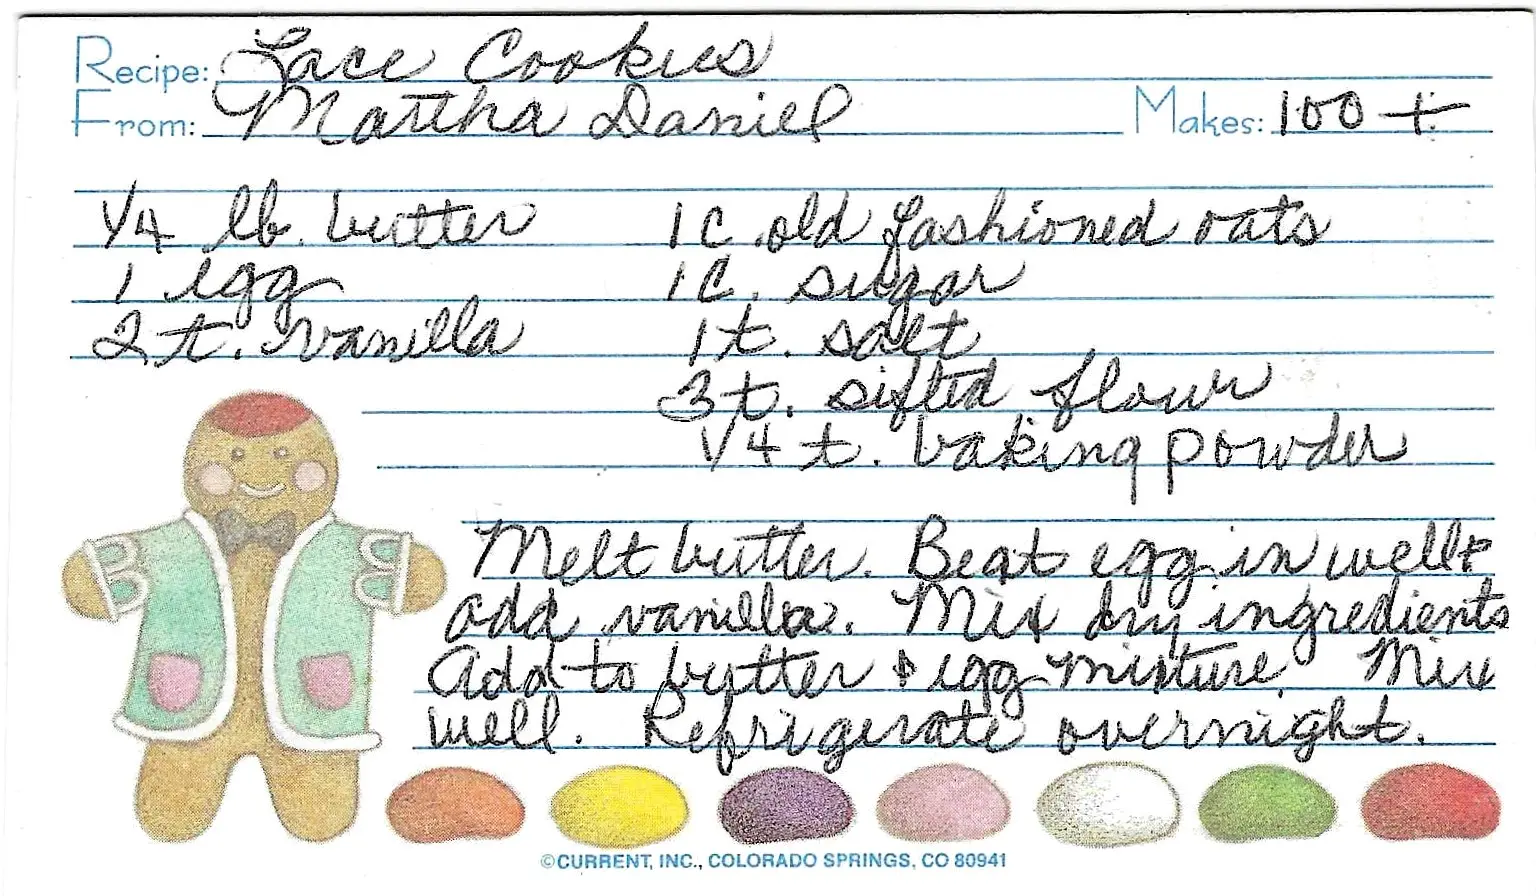 Recipe: Lace Cookies
From: Martha Daniel Makes: 100 +
1/4 lb. butter 1 c. old fashioned oats
1 egg 1 c. sugar
2 t. vanilla 1 t. salt
3 t. sifted flour
1/4 t. baking powder
Melt butter. Beat egg in well &
add vanilla. Mix dry ingredients
Add to butter & egg mixture. Mix
well. Refrigerate overnight.
©CURRENT, INC., COLORADO SPRINGS, CO 80941